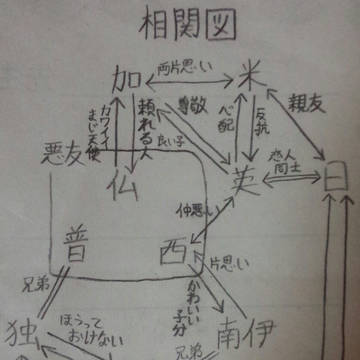 相関図
加
両片思い
米
カワイイ
まじ天使
頼れる人
尊敬
良い子
心配
反抗
親友
悪友
仏
英
恋人
同士
日
仲悪い
普
西
片思い
兄弟
かわいい
子分
独
ほうって
おけない
南伊
兄弟